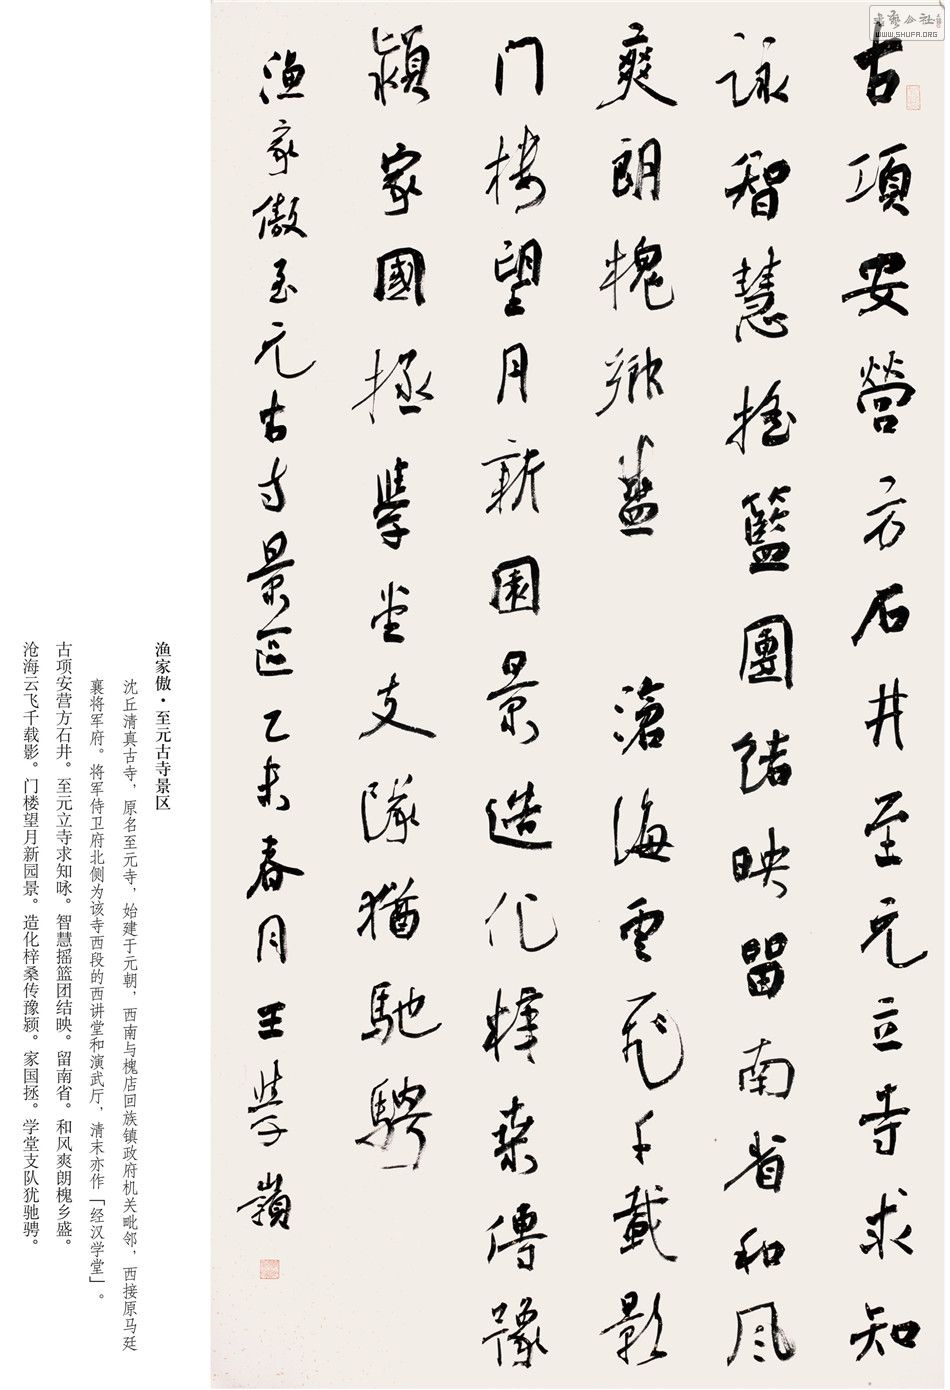 书艺公社
WWW.SHUFA.ORG
古項安營方石井至元立寺求知
詠智慧搖籃團結映留南省和風
爽朗槐鄉盛 滄海雲飛千載影
门楼望月新園景造化梓桑傳豫
潁家國拯學堂支隊猶馳騁
漁家傲至元古寺景區乙未春月王學嶺
渔家傲·至元古寺景区
沈丘清真古寺，原名至元寺，始建于元朝，西南与槐店回族镇政府机关毗邻，西接原马廷
襄将军府。将军侍卫府北侧为该寺西段的西讲堂和演武厅，清末亦作「经汉学堂」。
古项安营方石井。至元立寺求知咏。智慧摇篮团结映。留南省。和风爽朗槐乡盛。
沧海云飞千载影。门楼望月新园景。造化梓桑传豫颍。家国拯。学堂支队犹驰骋。